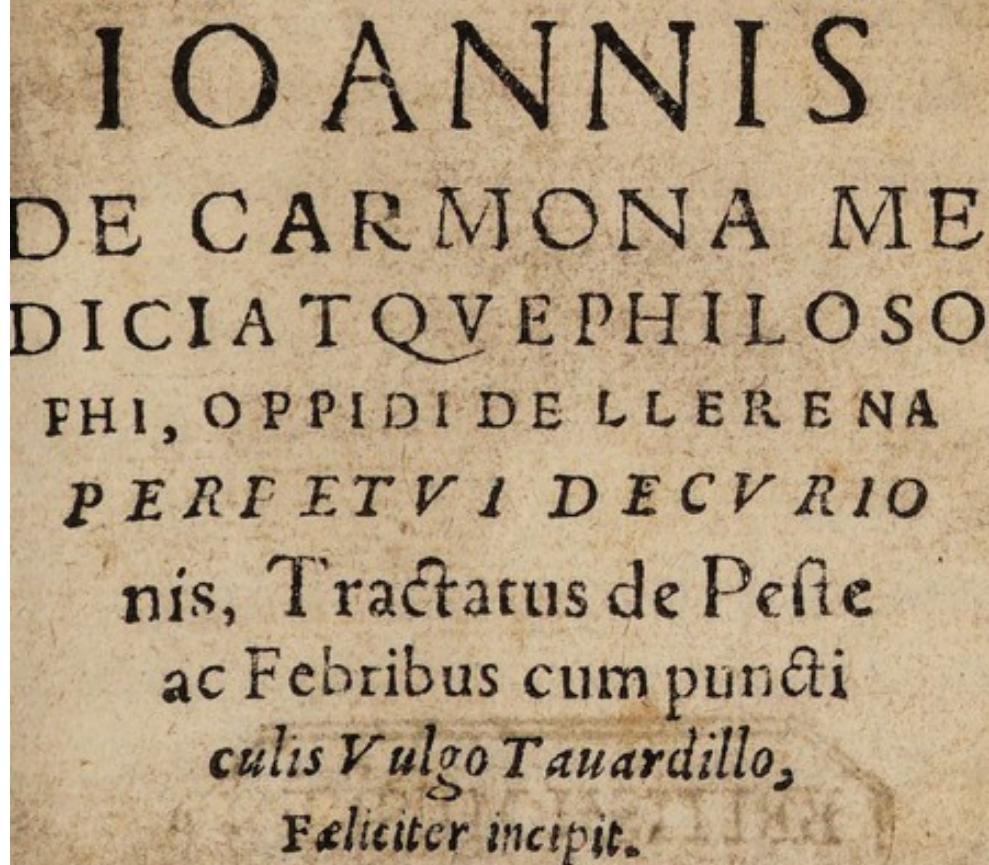 IOANNIS
DE CARMONA ME
DICI ATQVE PHILOSO
PHI, OPPIDI DE LLERENA
PERPETVI DECVRIO
nis, Tractatus de Peste
ac Febribus cum puncti
culis Vulgo Tauardillo,
Fæliciter incipit.